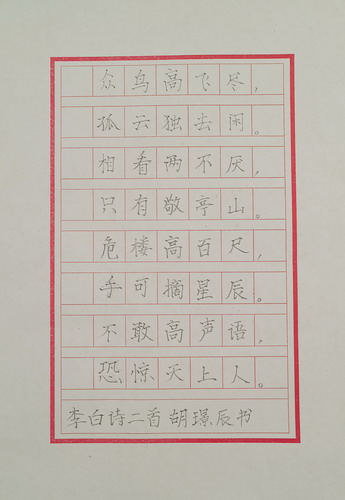 众鸟高飞尽，
狐云独去闲。
相看两不厌，
只有敬亭山。
危楼高百尺，
手可摘星辰。
不敢高声语，
恐惊天上人。
李白诗二首 胡璟辰书